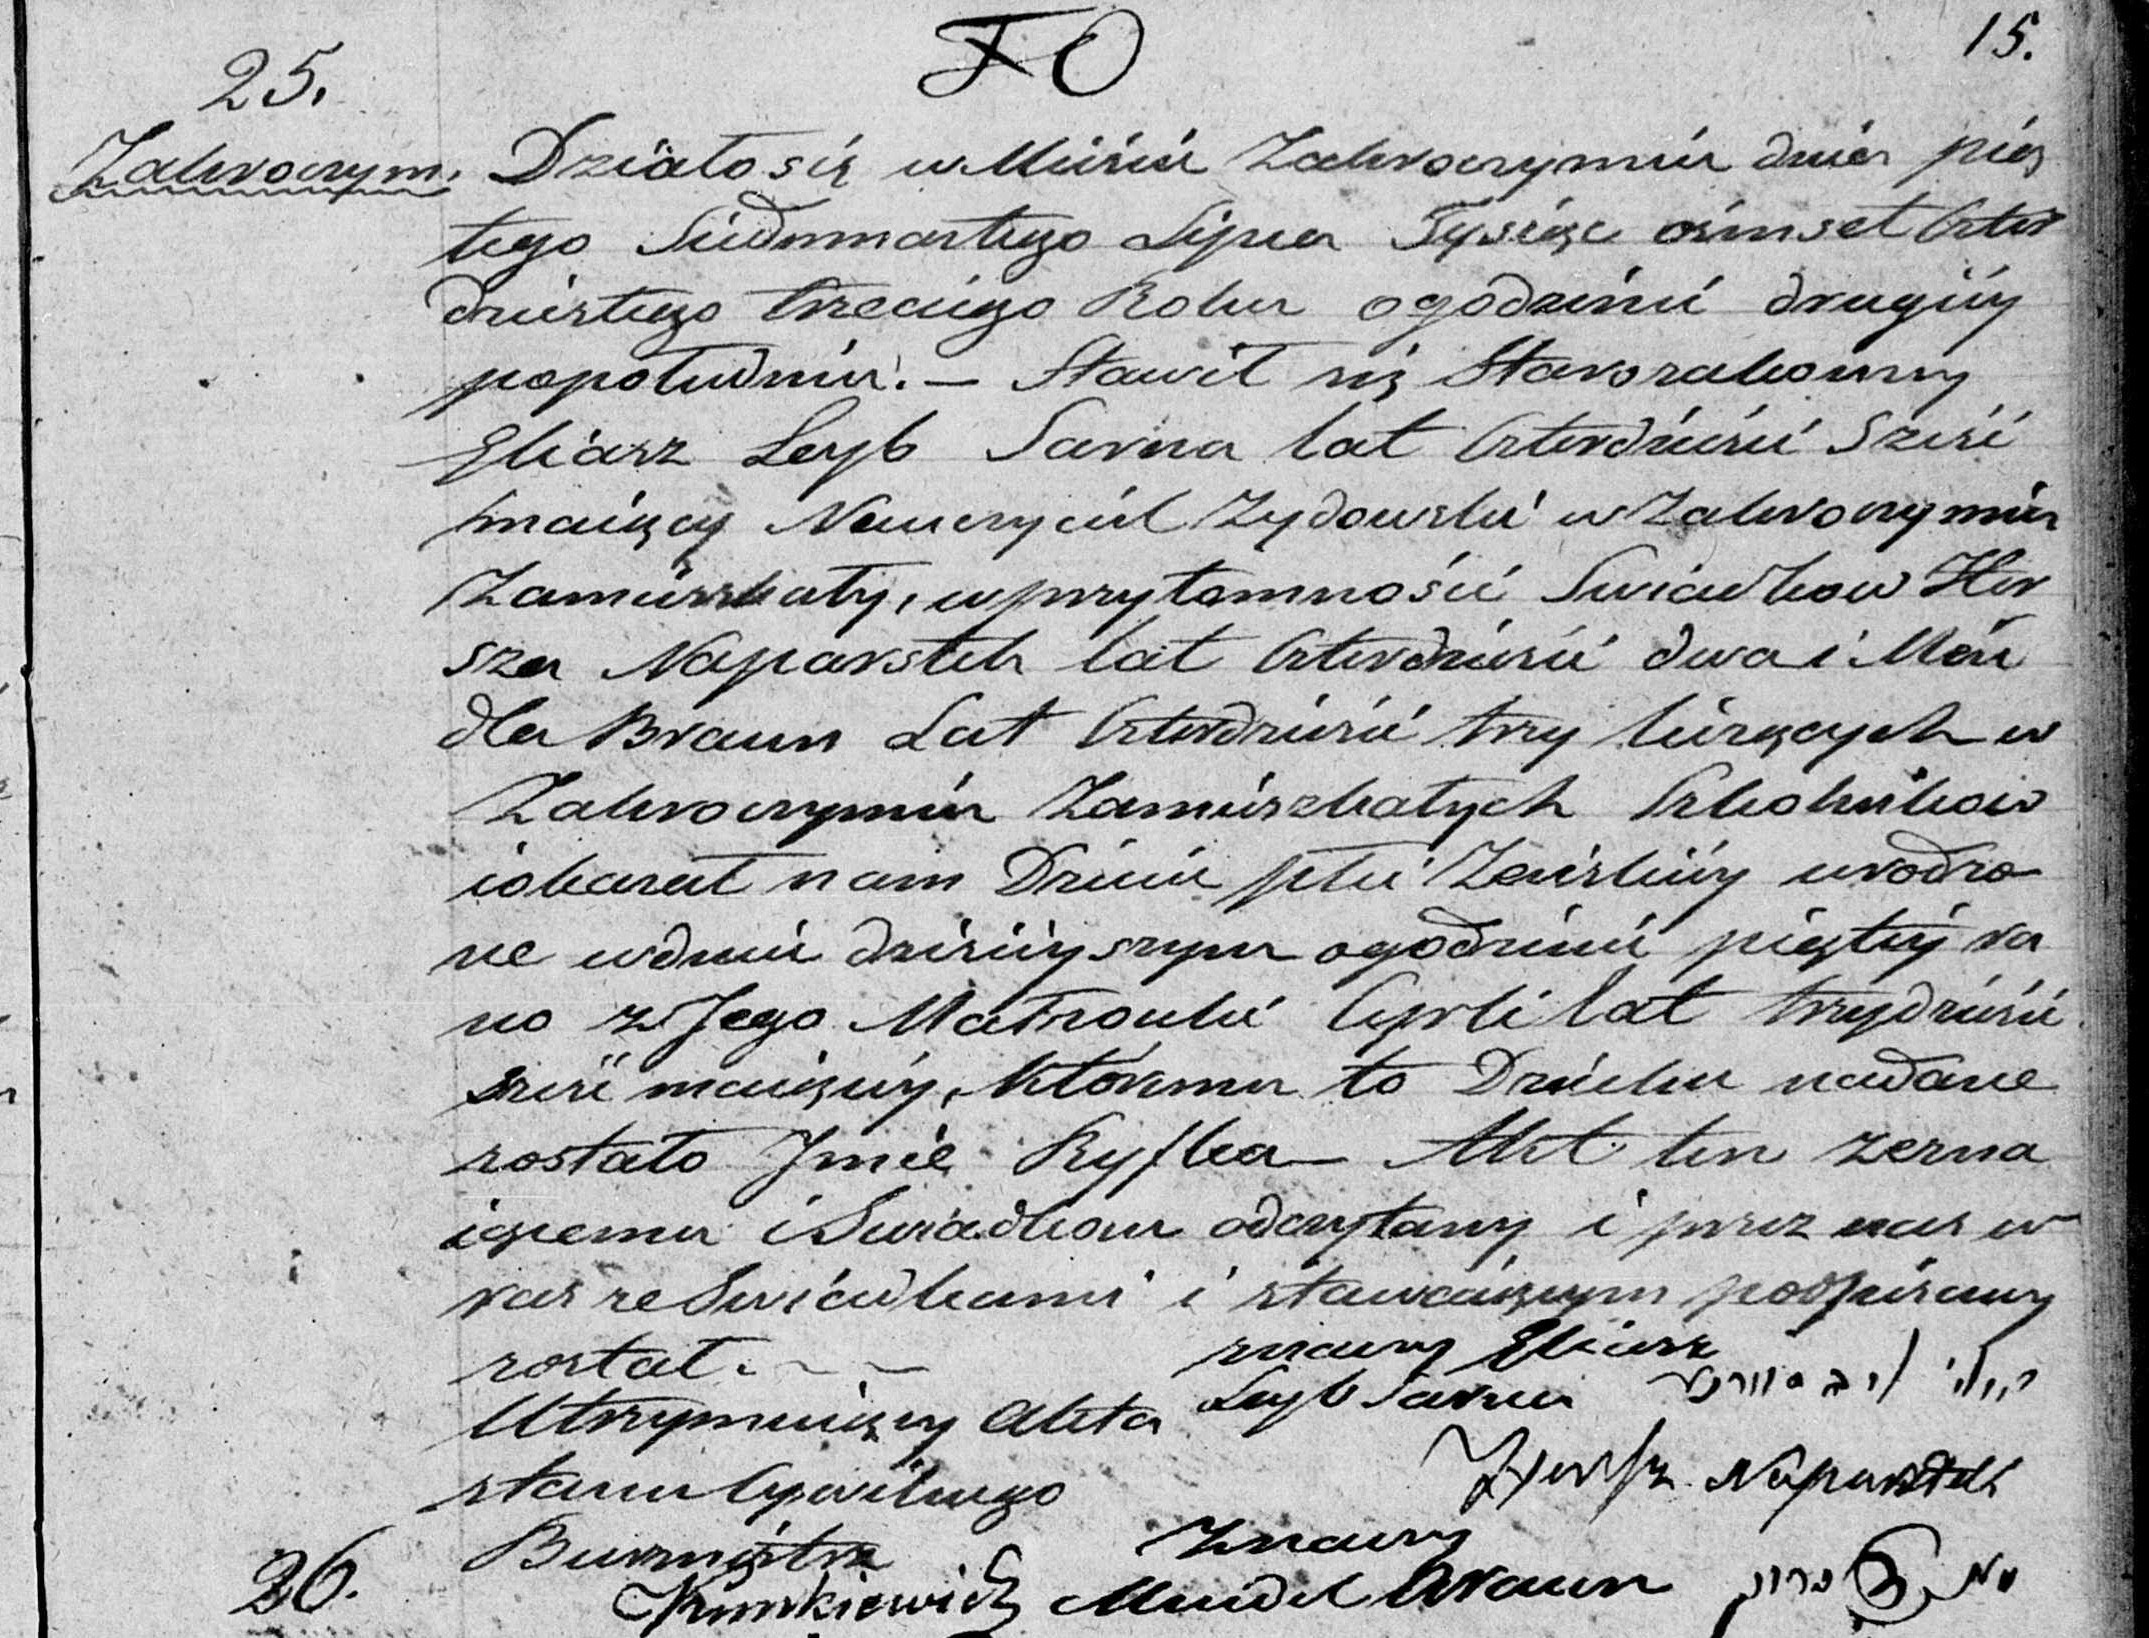 15.
25.
Zakroczym. Działo się w Mieście Zakroczymiu dnia pią
tego Siedmnastego Lipca Tysiąc ośmset Czter
dziestego trzeciego Roku o godzinie drugiéy
popołudniu. — Stawił się Starozakonny
Eliasz Leyb Sarna lat Czterdzieści Sześć
maiący Nauczyciel Zydowski w Zakroczymiu
Zamieszkały, w przytomności Swiadkow Her
sza Naparstek lat Czterdzieści dwa i Men
dla Braun Lat Czterdzieści trzy liczących w
Zakroczymiu Zamieszkałych Szkolnikow
i okazał nam Dziecie płci Zeńskiéy urodzo
ne w dniu dzisieyszym o godzinie piątéy ra
no z Jego Małzonki Cyrli lat trzydzieści
sześć maiącéy, Któremu to Dziecku nadane
zostało Jmie Ryfka — Akt ten zezna
iącemu i Swiadkom odczytany i przez nas w
raz ze Swiadkami i stawaiącym podpisany
zostal. —
znaczy Eliasz
Leyb Sarna
Utrzymuiący Akta
stanu Cywilnego
Naparstek
Burmistrz
Znaczy
Mendel Braun
26.